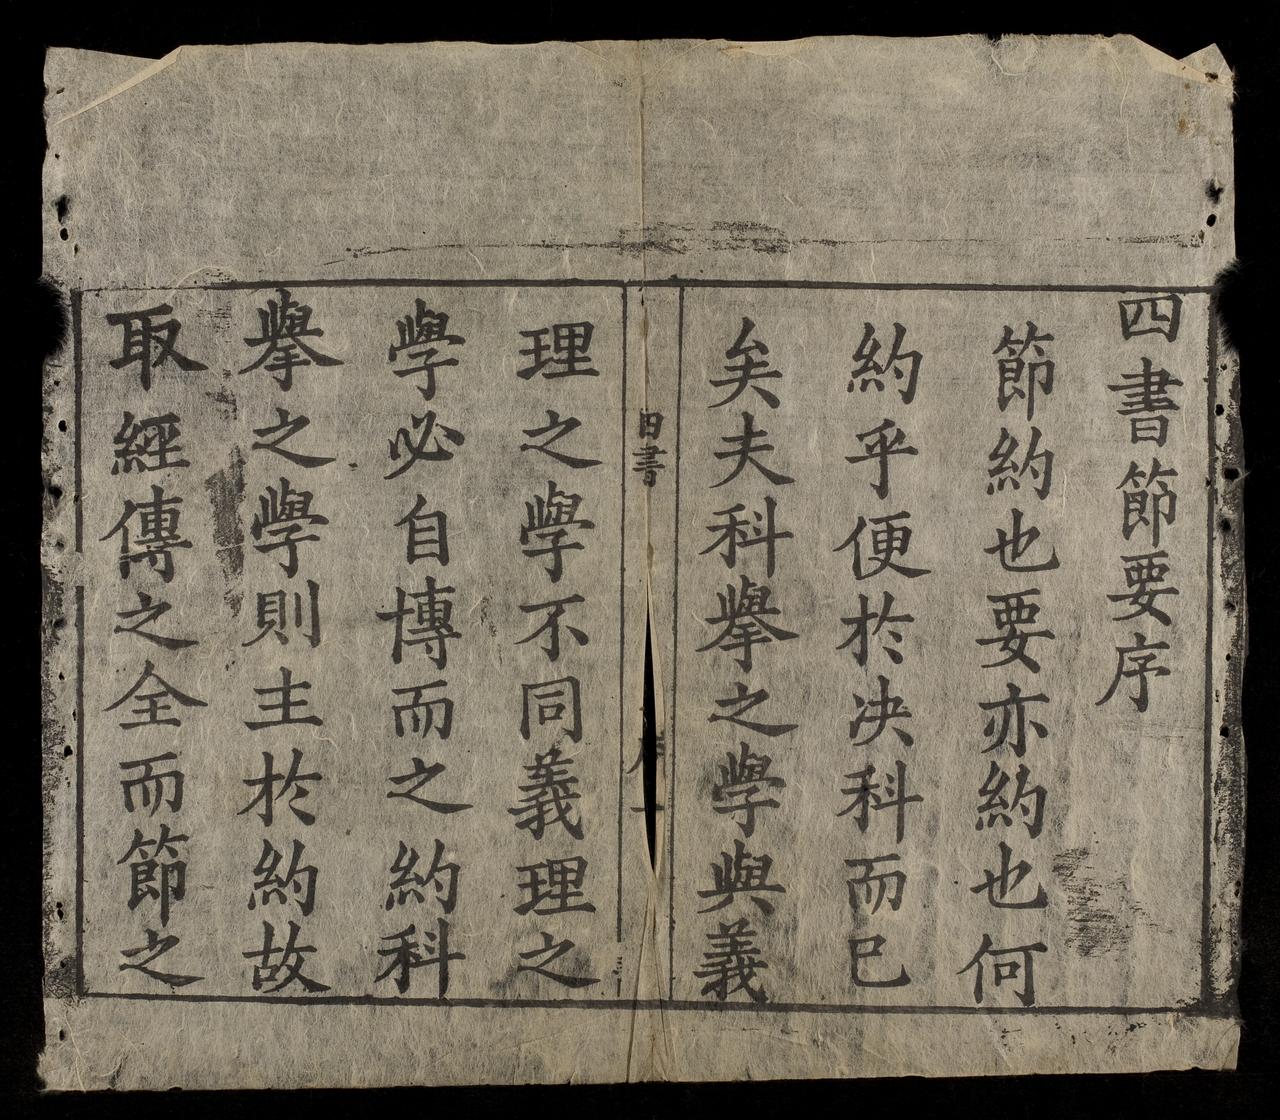 四書節要序
節約也要亦約也何
約乎便於决科而已
矣夫科擧之學與義
四書
序
一
理之學不同義理之
學必自博而之約科
擧之學則主於約故
取經傳之全而節之